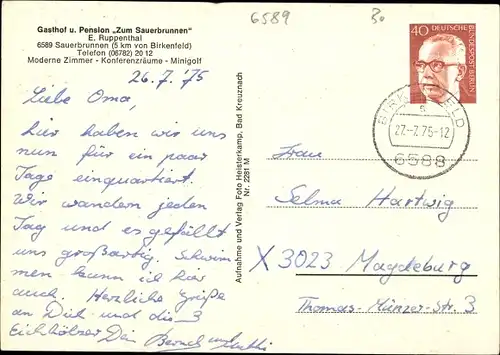 Gasthof u. Pension „Zum Sauerbrunnen"
E. Ruppenthal
6589 Sauerbrunnen (5 km von Birkenfeld)
Telefon (06782) 20 12
Moderne Zimmer - Konferenzräume - Minigolf
26.7.75
Liebe Oma,
hier haben wir uns
nun für ein paar
Tage einquartiert.
Wir wandern jeden
Tag und es gefällt
uns großartig. Schwim-
men kann ich hier
auch. Herzliche Grüße
an Dich und die 3
Eichhölzer Dein Bernd und
Aufnahme und Verlag Foto Heisterkamp, Bad Kreuznach
Nr. 2281 M
6589
30
40
DEUTSCHE
BUNDESPOST BERLIN
BIRKENFELD
27.-7.75-12
6588
Frau
Selma Hartwig
X 3023 Magdeburg
Thomas-Münzer-Str. 3